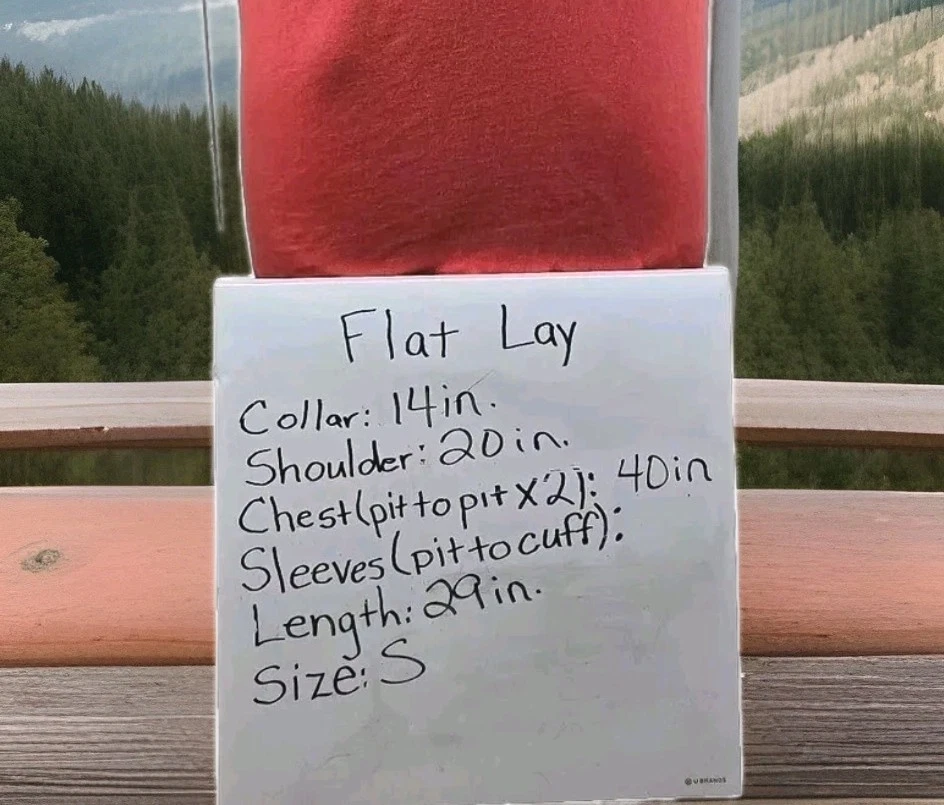 Flat Lay
Collar: 14in.
Shoulder: 20in.
Chest(pit to pit X2): 40in
Sleeves(pit to cuff):
Length: 29in.
Size: S
U BRANDS